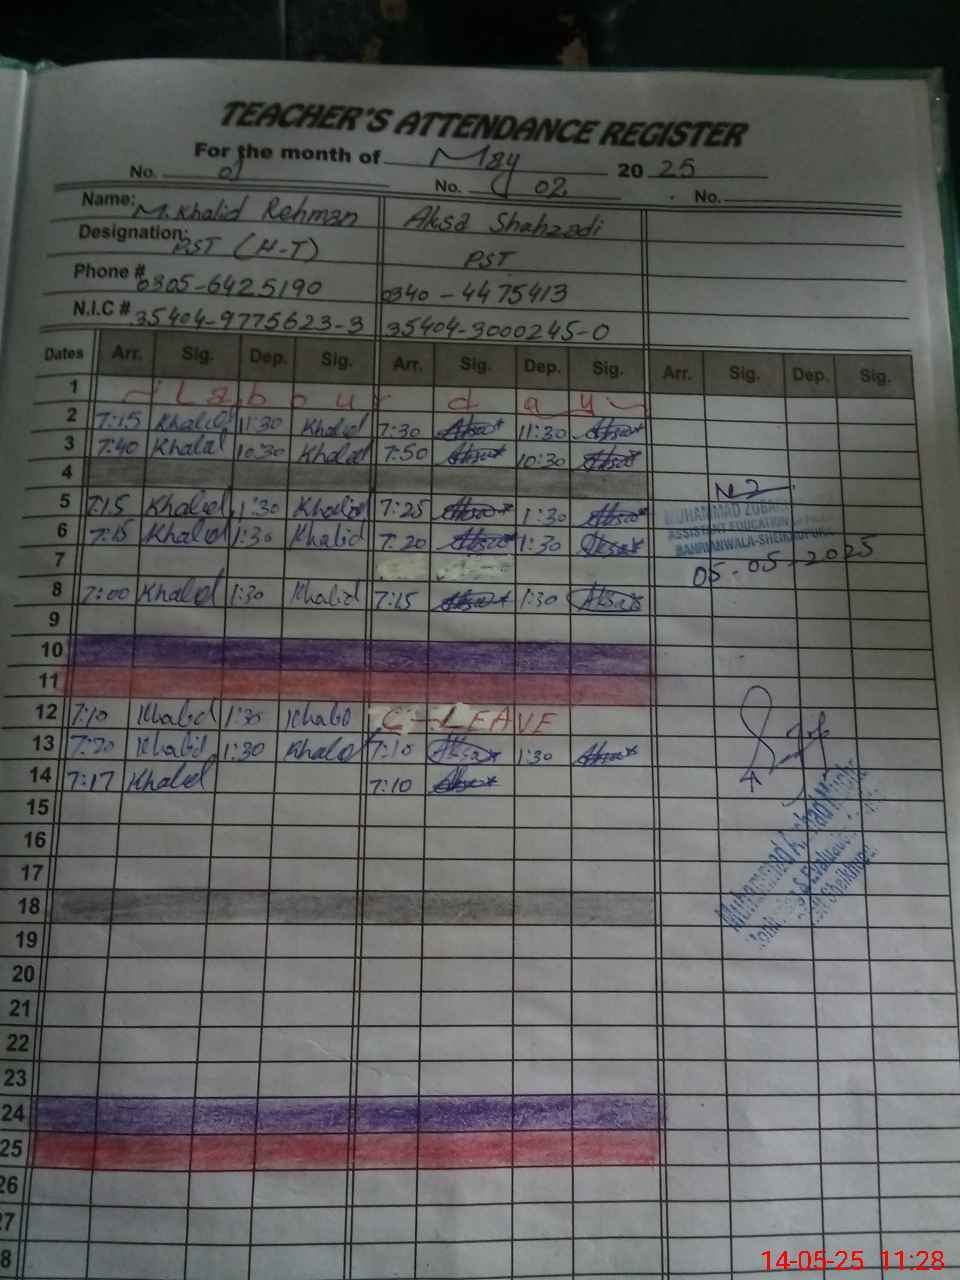 TEACHER'S ATTENDANCE REGISTER
For the month of May 2025
No. 01 No. 02 No.
Name: M. Khalid Rehman Aksa Shahzadi
Designation: PST (H-T) PST
Phone # 0305-6425190 0340-4475413
N.I.C # 35404-9775623-3 35404-3000245-0
Dates Arr. Sig. Dep. Sig. Arr. Sig. Dep. Sig. Arr. Sig. Dep. Sig.
1 Labour day
2 7:15 Khalid 11:30 Khalid 7:30 Aksa 11:30 Aksa
3 7:40 Khalid 10:30 Khalid 7:50 Aksa 10:30 Aksa
4
5 7:15 Khalid 1:30 Khalid 7:25 Aksa 1:30 Aksa
MUHAMMAD
ASSISTANT EDUCATION
6 7:15 Khalid 1:30 Khalid 7:20 Aksa 1:30 Aksa
7 05-05-2025
8 7:00 Khalid 1:30 Khalid 7:15 Aksa 1:30 Aksa
9
10
11
12 7:10 Khalid 1:30 Khalid C-LEAVE
13 7:20 Khalid 1:30 Khalid 7:10 Aksa 1:30 Aksa
14 7:17 Khalid 7:10 Aksa
15
16
17
Muhammad
& Evaluation
18
19
20
21
22
23
24
25
26
27
8
14-05-25 11:28